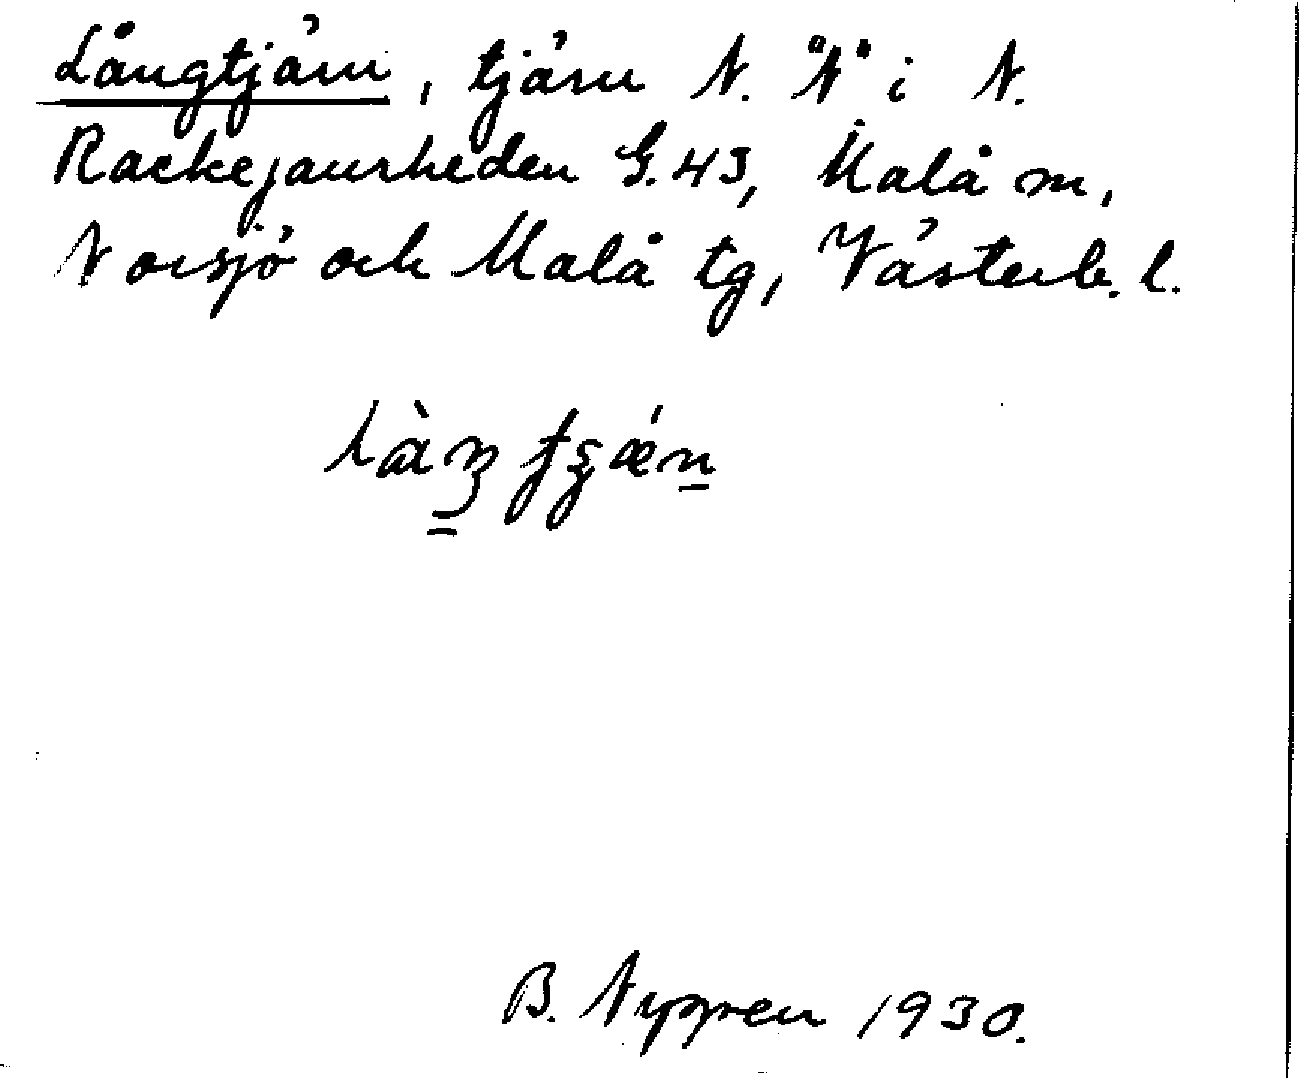 Långtjärn, tjärn N. "N" i N.
Rackejaurheden G.43, Malå sn,
Norsjö och Malå tg, Västerb. l.
B. Nygren 1930.